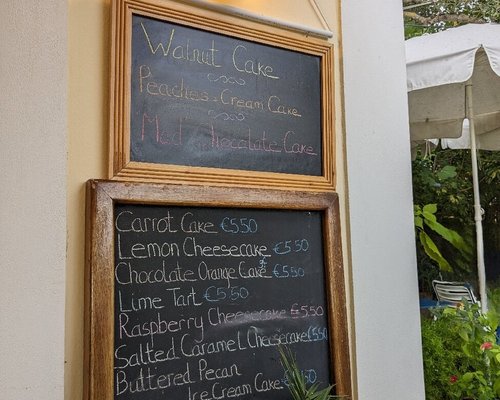 Walnut Cake
Peaches & Cream Cake
Mad Chocolate Cake
Carrot Cake €5.50
Lemon Cheesecake €5.50
Chocolate Orange Cake €5.50
Lime Tart €5.50
Raspberry Cheesecake €5.50
Salted Caramel Cheesecake €5.50
Buttered Pecan
Ice Cream Cake